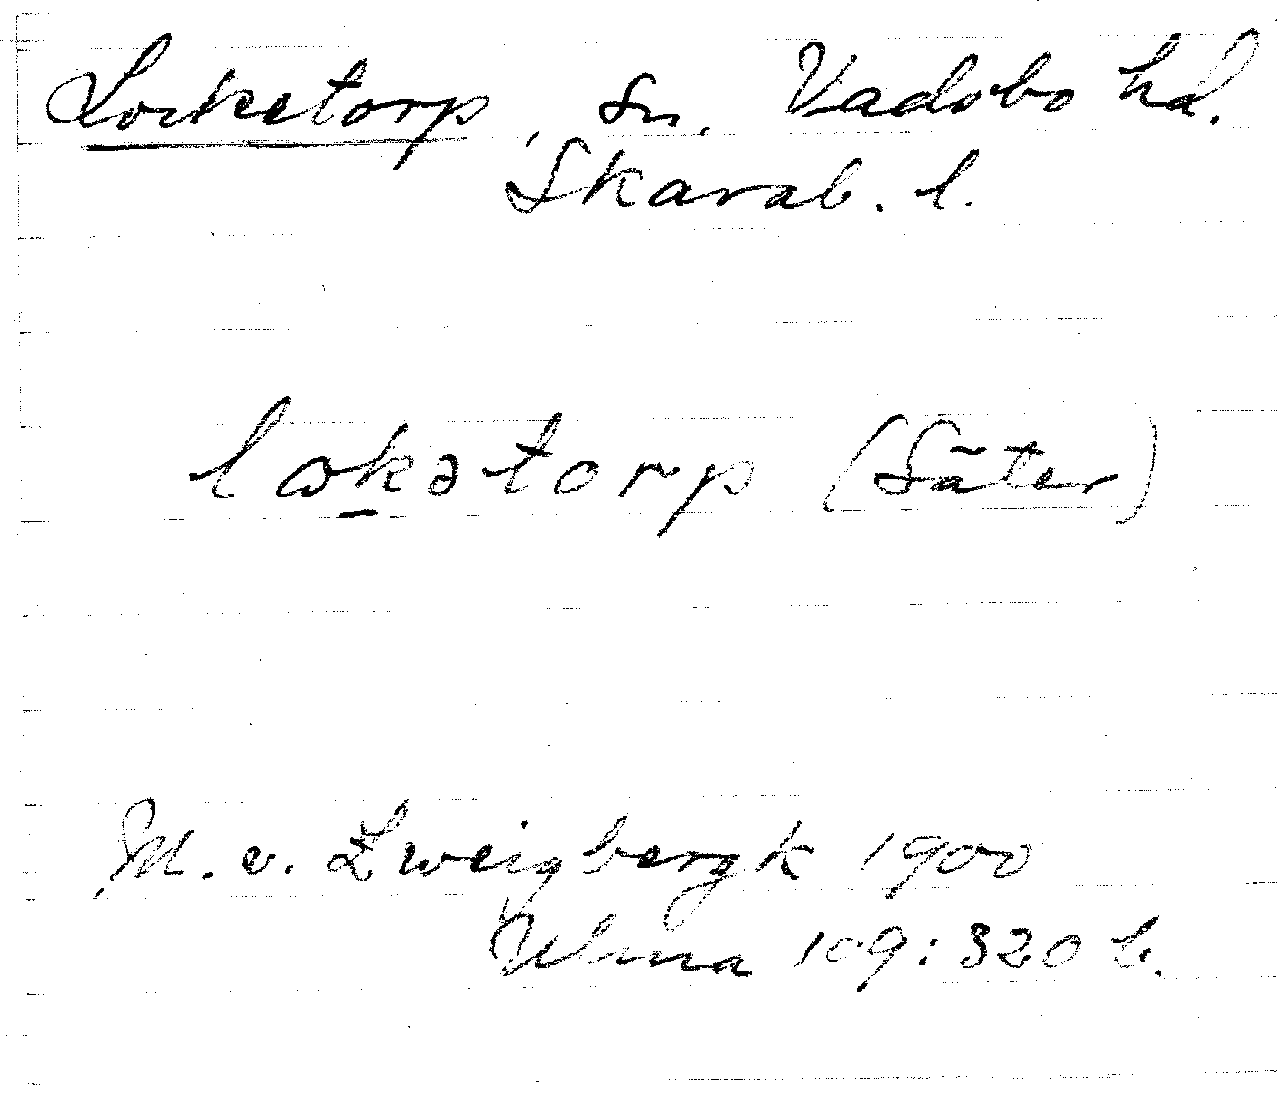 Locketorp, sn. Vadsbo hd.
Skarab. l.
lωkətorp (Säter)
M. v. Zweigbergk 1900
Ulma 109:320 b.